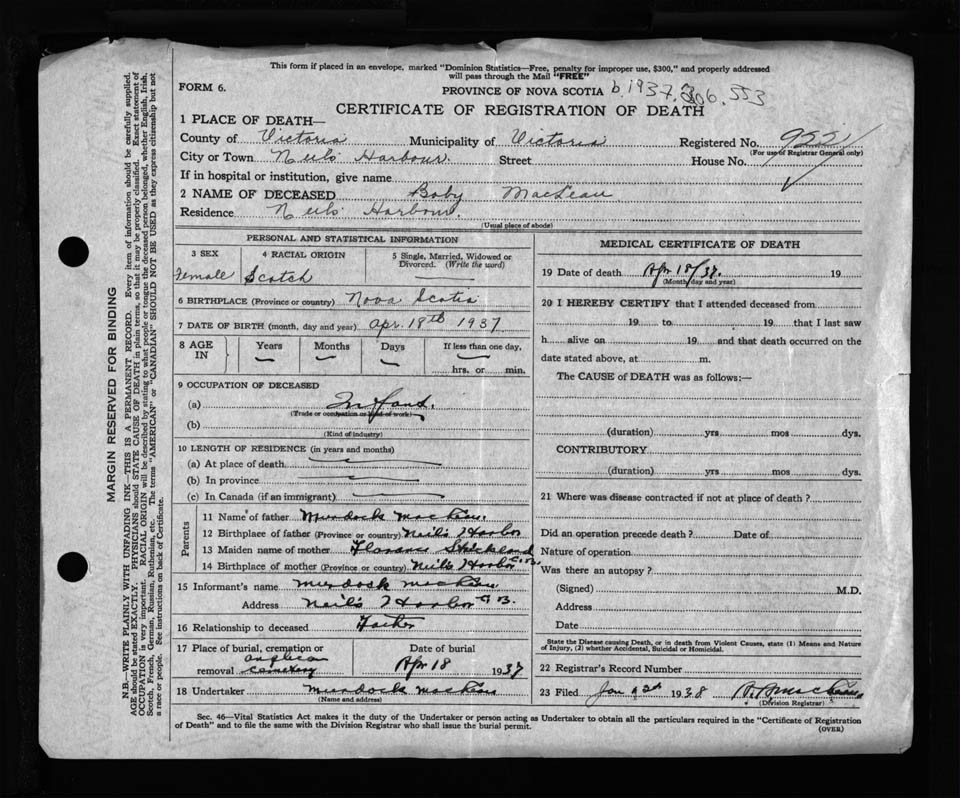 This form if placed in an envelope, marked "Dominion Statistics—Free, penalty for improper use, $300," and properly addressed
will pass through the Mail "FREE"
FORM 6.
PROVINCE OF NOVA SCOTIA b.1937. 306.553
CERTIFICATE OF REGISTRATION OF DEATH
1 PLACE OF DEATH—
County of Victoria Municipality of Victoria Registered No. 9221
(For use of Registrar General only)
City or Town Neils Harbour. Street House No.
If in hospital or institution, give name
2 NAME OF DECEASED Baby MacLean
Residence Neils Harbour.
(Usual place of abode)
PERSONAL AND STATISTICAL INFORMATION
3 SEX 4 RACIAL ORIGIN 5 Single, Married, Widowed or
Divorced. (Write the word)
Female Scotch
6 BIRTHPLACE (Province or country) Nova Scotia
7 DATE OF BIRTH (month, day and year) Apr. 18th 1937
8 AGE IN Years Months Days If less than one day,
hrs. or min.
9 OCCUPATION OF DECEASED
(a) Infant.
(Trade or occupation or kind of work)
(b)
(Kind of industry)
10 LENGTH OF RESIDENCE (in years and months)
(a) At place of death
(b) In province
(c) In Canada (if an immigrant)
Parents
11 Name of father Murdock
12 Birthplace of father (Province or country) Neil's Harbor
13 Maiden name of mother Florance
14 Birthplace of mother (Province or country) Neil's Harbor C.B.
15 Informant's name Murdock
Address Neil's Harbor C B.
16 Relationship to deceased Father
17 Place of burial, cremation or Date of burial
removal Anglican cemetery Apr 18 1937
18 Undertaker Murdock
(Name and address)
MEDICAL CERTIFICATE OF DEATH
19 Date of death Apr 18/37. 19
(Month, day and year)
20 I HEREBY CERTIFY that I attended deceased from
19 to 19 that I last saw
h alive on 19 and that death occurred on the
date stated above, at m.
The CAUSE of DEATH was as follows:—
(duration) yrs mos dys.
CONTRIBUTORY
(duration) yrs mos dys.
21 Where was disease contracted if not at place of death ?
Did an operation precede death ? Date of
Nature of operation
Was there an autopsy ?
(Signed) M.D.
Address
Date
State the Disease causing Death, or in death from Violent Causes, state (1) Means and Nature
of Injury, (2) whether Accidental, Suicidal or Homicidal.
22 Registrar's Record Number
23 Filed Jan 1938
(Division Registrar)
Sec. 46—Vital Statistics Act makes it the duty of the Undertaker or person acting as Undertaker to obtain all the particulars required in the "Certificate of Registration
of Death" and to file the same with the Division Registrar who shall issue the burial permit.
(OVER)
MARGIN RESERVED FOR BINDING
N.B.—WRITE PLAINLY WITH UNFADING INK—THIS IS A PERMANENT RECORD. Every item of information should be carefully supplied.
AGE should be stated EXACTLY. PHYSICIANS should STATE CAUSE OF DEATH in plain terms, so that it may be properly classified. Exact statement of
OCCUPATION is very important. RACIAL ORIGIN will be described by stating to what people or tongue the deceased person belonged, whether English, Irish,
Scotch, French, German, Russian, Ruthenian, etc. The terms "AMERICAN" or "CANADIAN" SHOULD NOT BE USED as they express citizenship but not
a race or people. See instructions on back of Certificate.